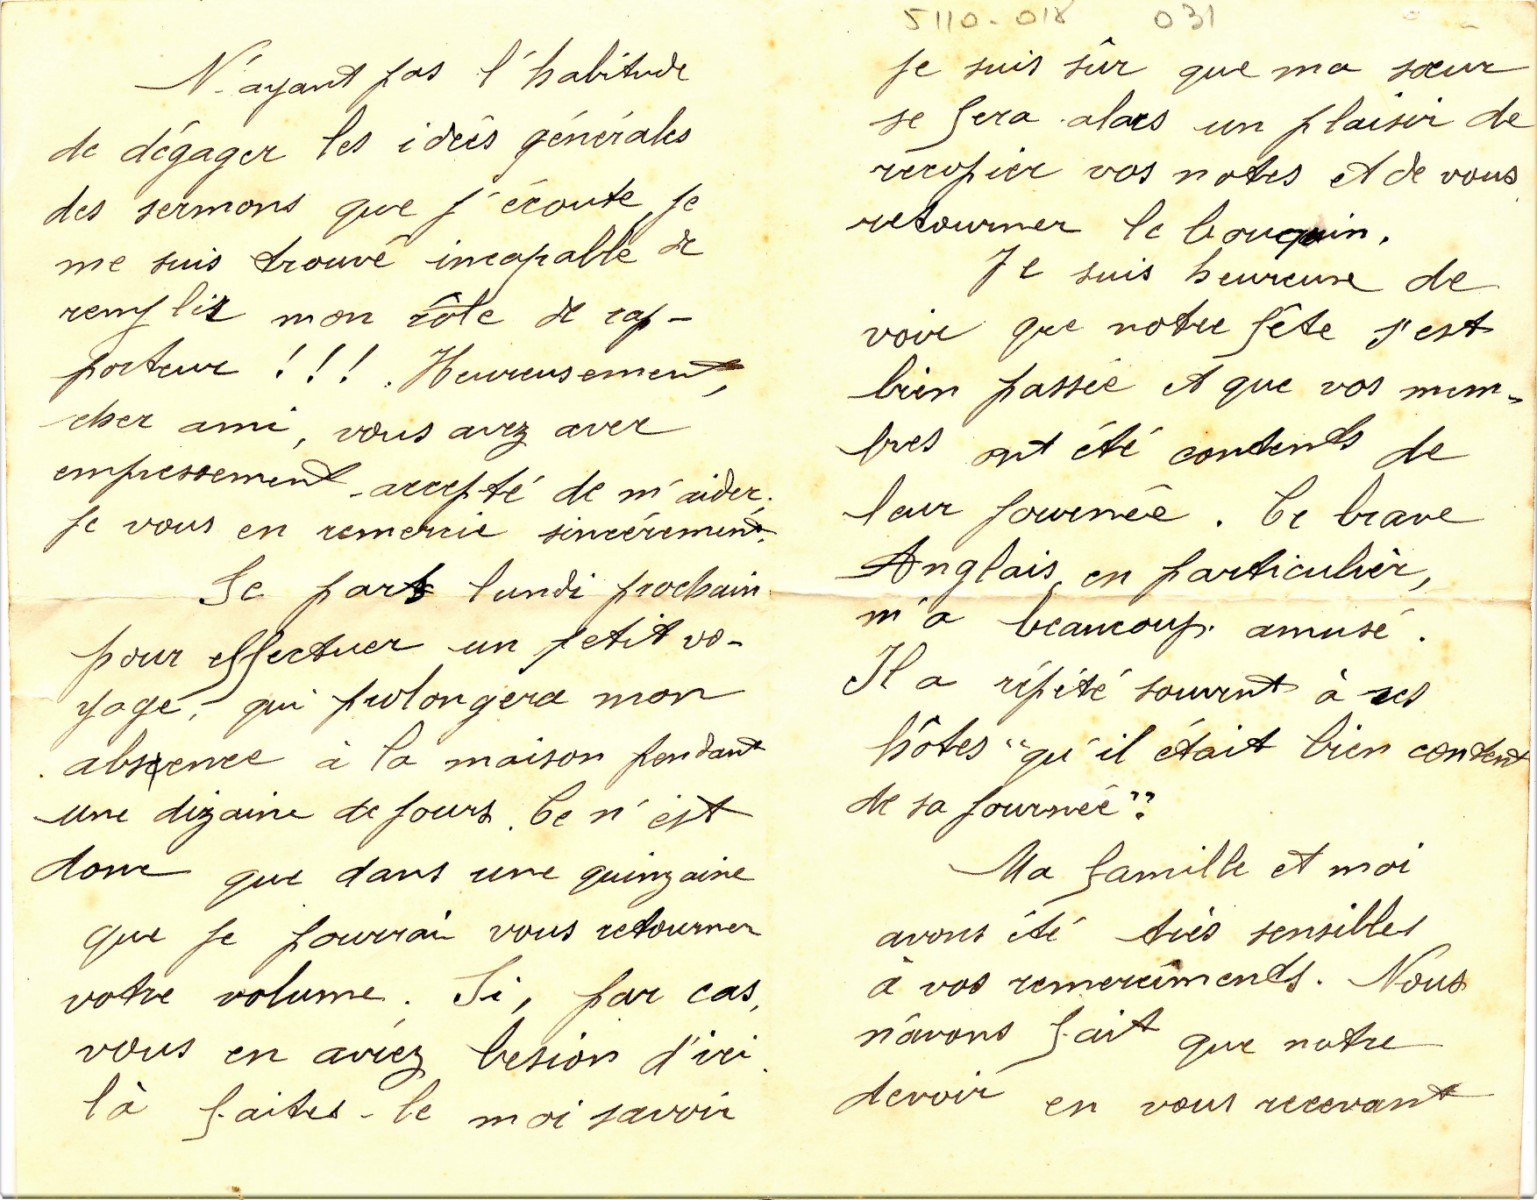 N'ayant pas l'habitude
de dégager les idées générales
des sermons que j'écoute, je
me suis trouvé incapable de
remplir mon rôle de rap-
porteur !!!. Heureusement,
cher ami, vous avez avec
empressement accepté de m'aider.
Je vous en remercie sincèrement.
Je pars lundi prochain
pour effectuer un petit vo-
yage, qui prolongera mon
absence à la maison pendant
une dizaine de jours. Ce n'est
donc que dans une quinzaine
que je pourrai vous retourner
votre volume. Si, par cas,
vous en aviez besion d'ici
là faites-le moi savoir
5110-018 031
je suis sûr que ma sœur
se fera alors un plaisir de
recopier vos notes et de vous
retourner le bouquin.
Je suis heureuse de
voir que notre fête s'est
bien passée et que vos mem-
bres ont été contents de
leur journée. Ce brave
Anglais, en particulier,
m'a beaucoup amusé.
Il a répété souvent à ses
hôtes "qu'il était bien content
de sa journée".
Ma famille et moi
avons été très sensibles
à vos remerciments. Nous
n'avons fait que notre
devoir en vous recevant